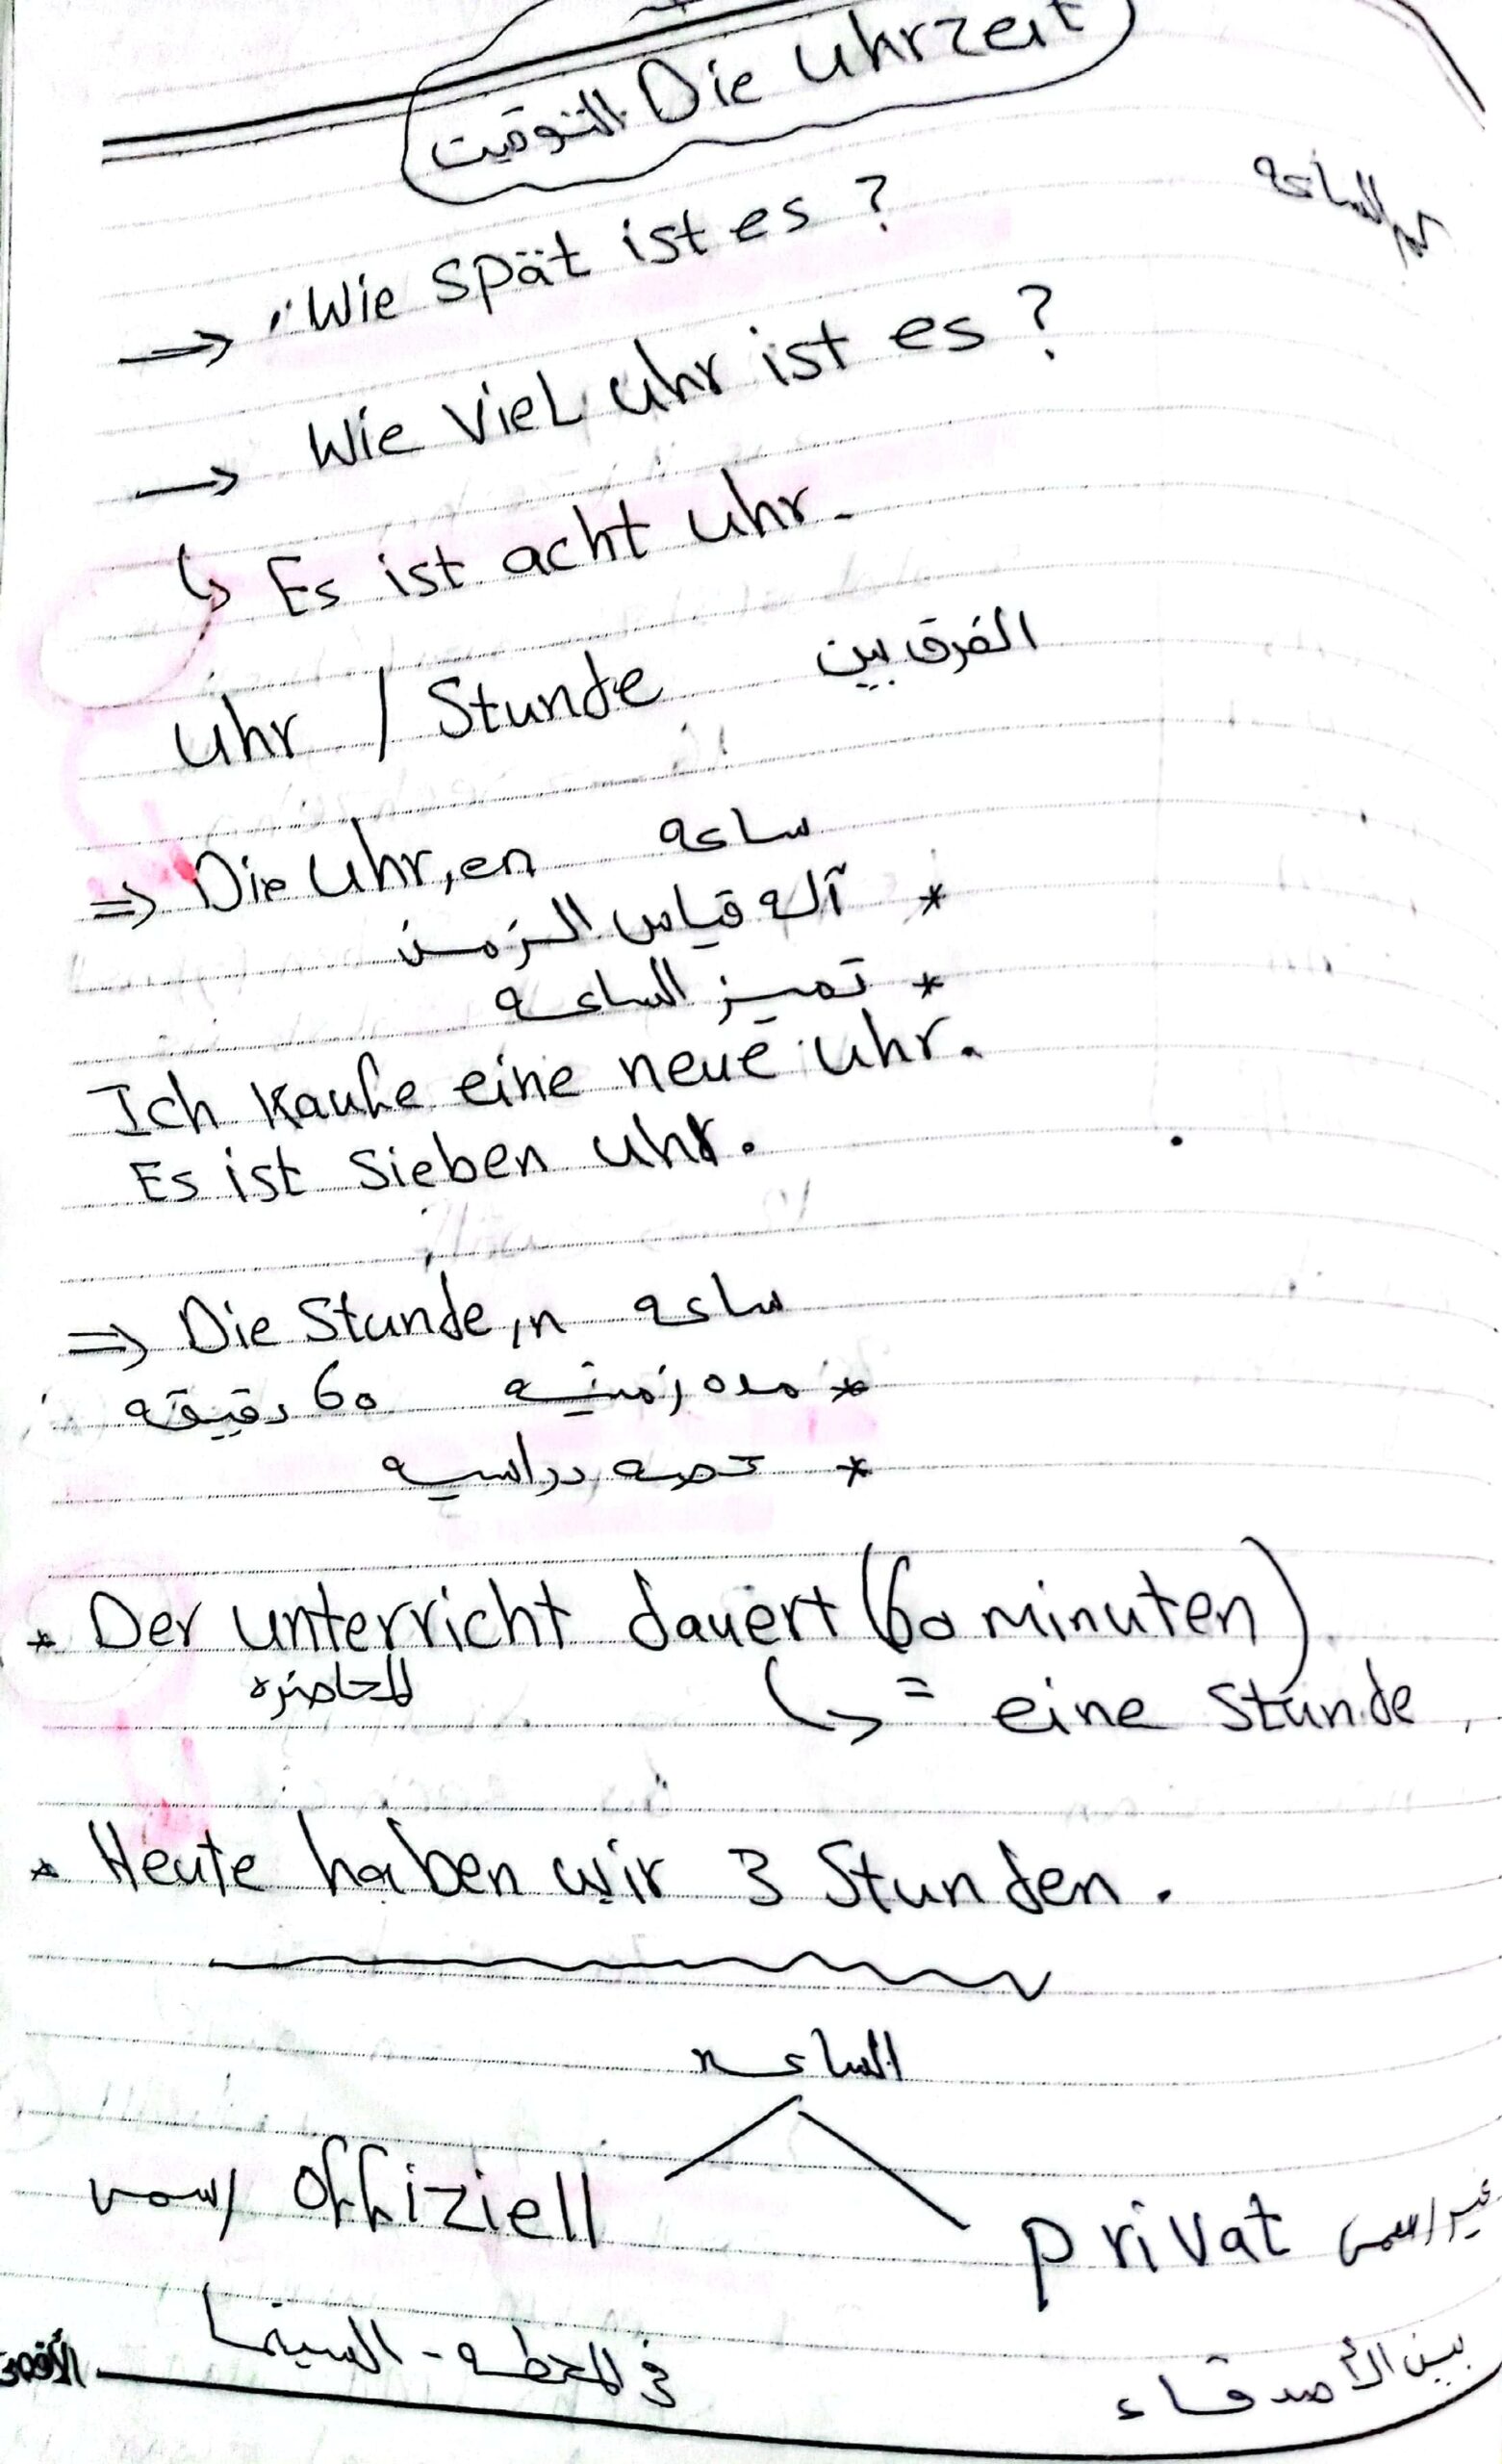 التوقيت Die Uhrzeit
كم الساعه
⇒ Wie spät ist es ?
→ Wie viel Uhr ist es ?
↳ Es ist acht Uhr.
Uhr / Stunde الفرق بين
⇒ Die Uhr, en ساعه
* آله قياس الزمن
* تمييز الساعه
Ich kaufe eine neue Uhr.
Es ist Sieben Uhr.
⇒ Die Stunde, n ساعه
* مده زمنيه 60 دقيقه
* حصه دراسيه
* Der Unterricht dauert (60 Minuten)
المحاضره
↳ = eine Stunde
* Heute haben wir 3 Stunden.
الساعه
رسمى Offiziell
privat غير رسمى
فى المحطه - السينما
بين الأصدقاء